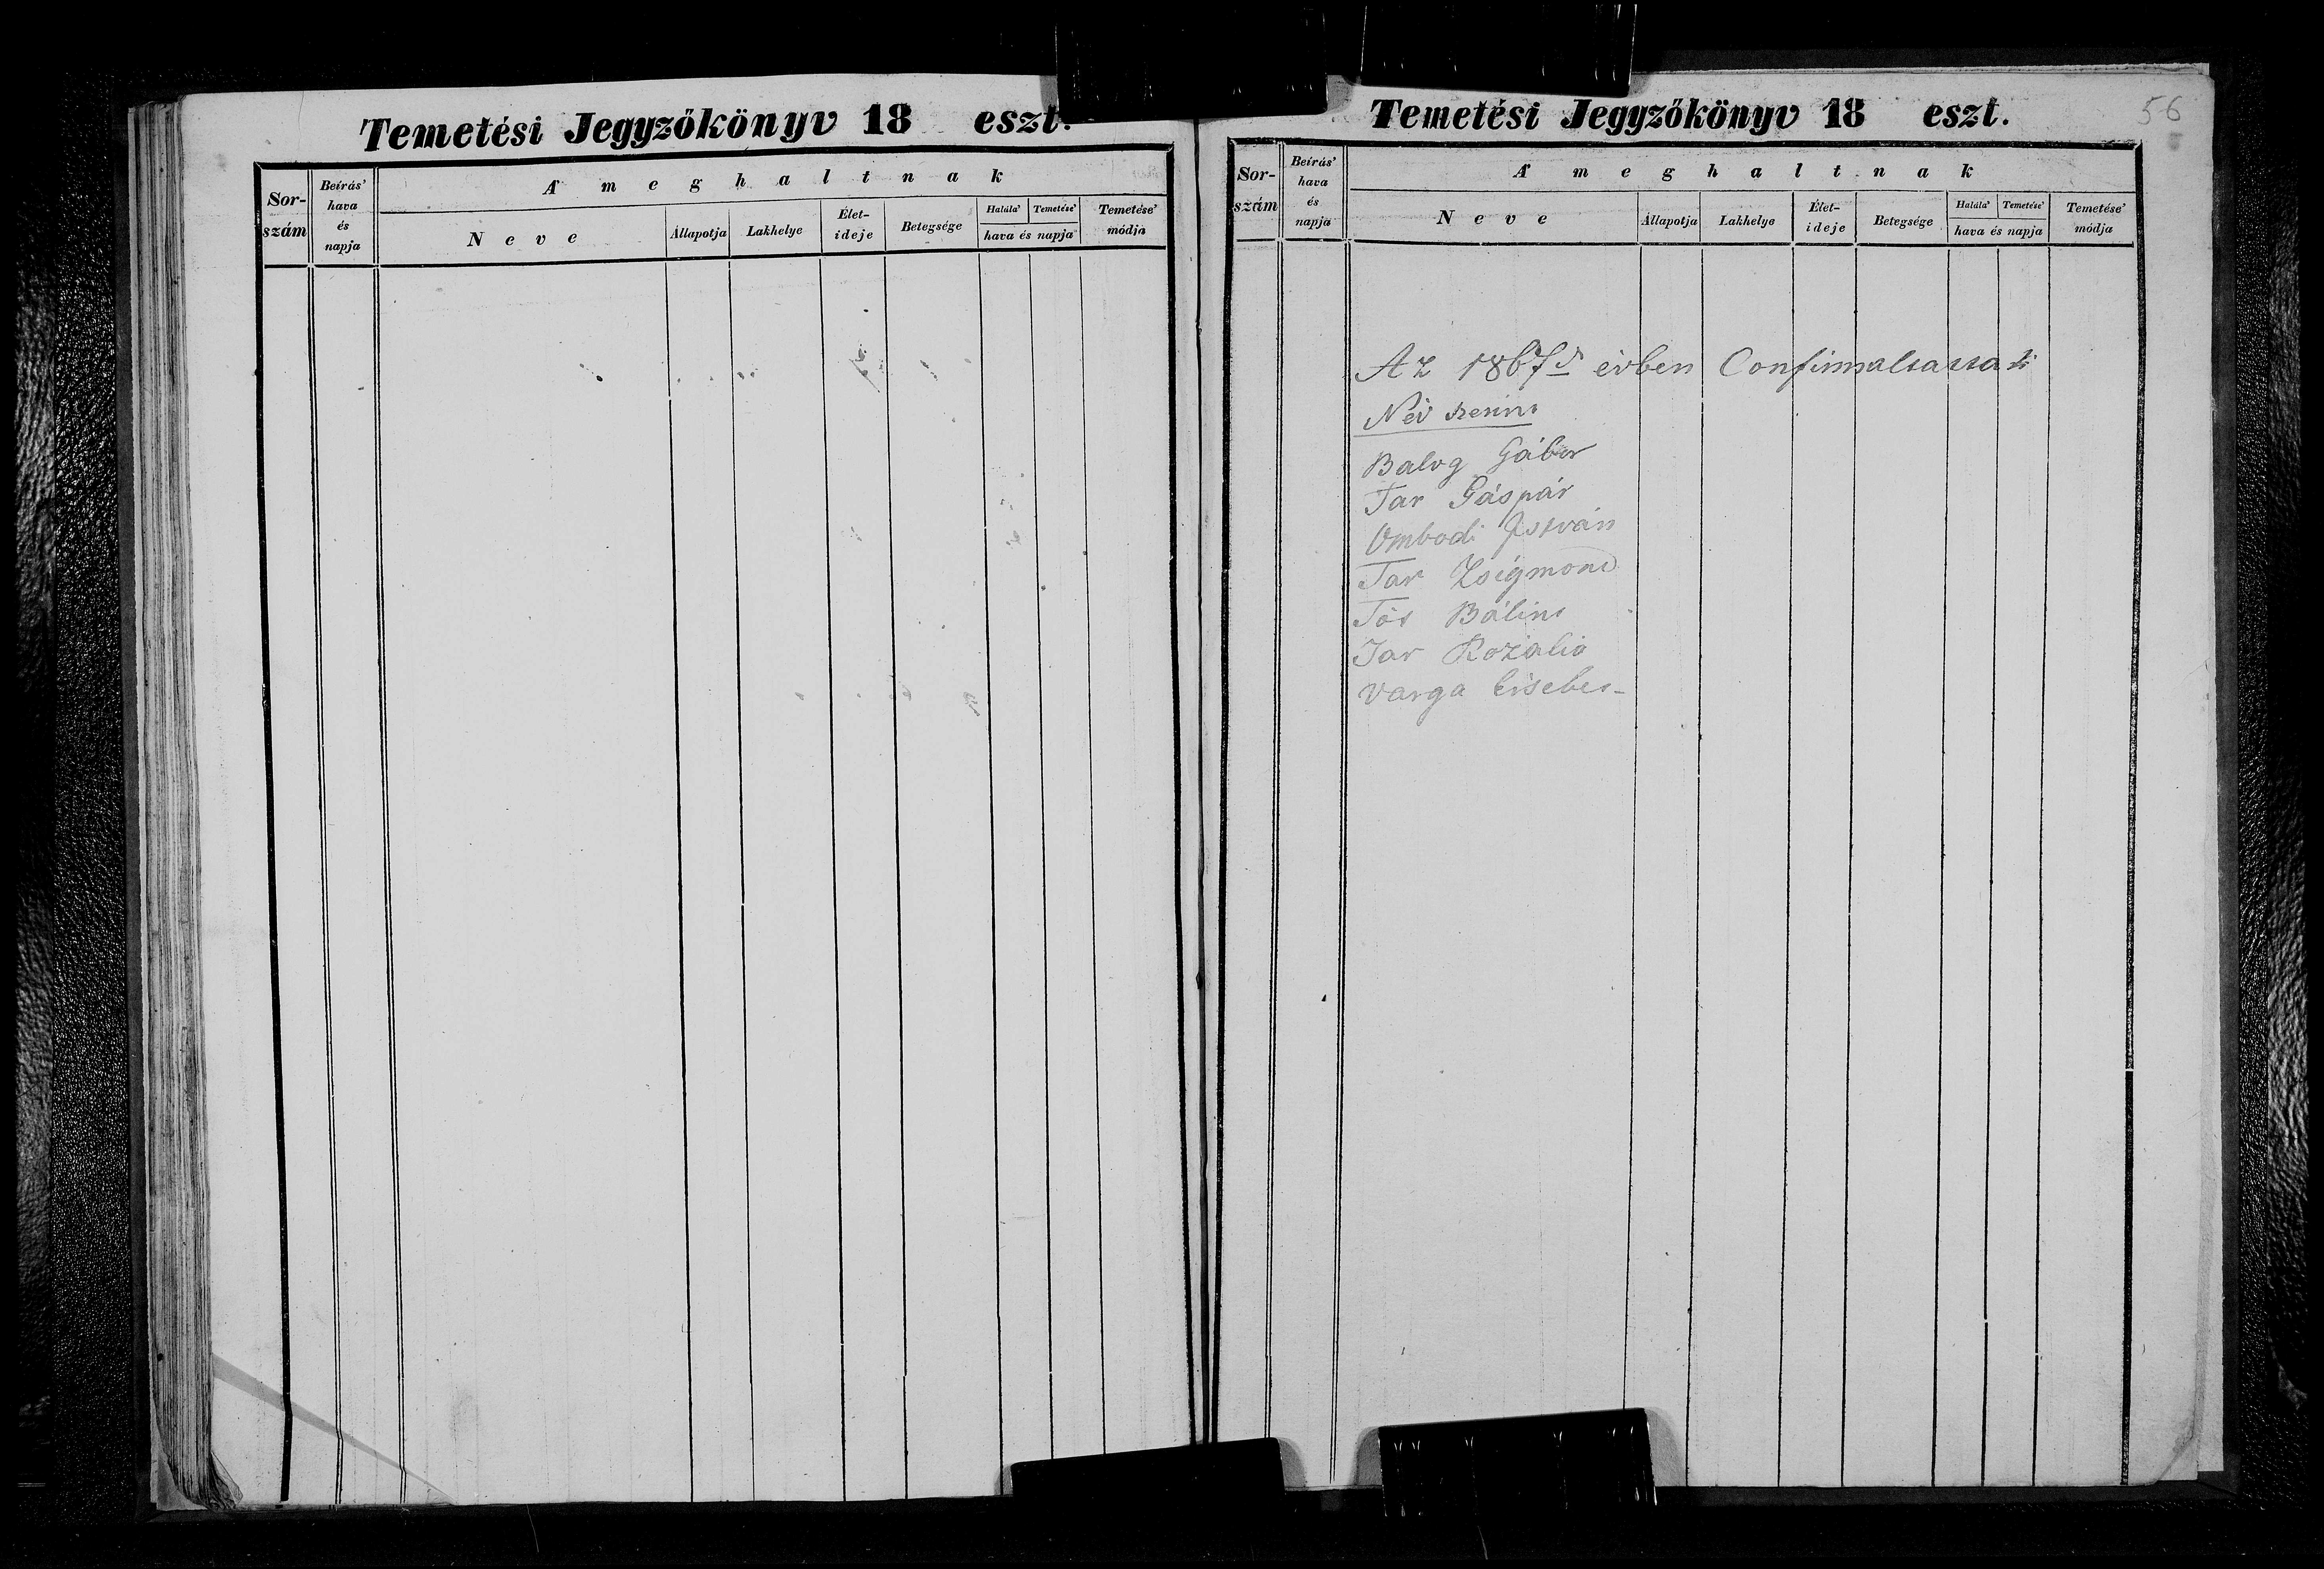 Temetési Jegyzőkönyv 18 eszt.
Sor-
szám
Beírás'
hava
és
napja
A' meghaltnak
Neve
Állapotja
Lakhelye
Élet-
ideje
Betegsége
Halála'
Temetése'
hava és napja
Temetése'
módja
56
Temetési Jegyzőkönyv 18 eszt.
Sor-
szám
Beírás'
hava
és
napja
A' meghaltnak
Neve
Állapotja
Lakhelye
Élet-
ideje
Betegsége
Halála'
Temetése'
hava és napja
Temetése'
módja
Az 1867ik évben
Név szerint
Balog Gábor
Tar Gáspár
Ombodi István
Tar Zsigmond
Tót Bálint
Tar Rozália
Varga Ersebet